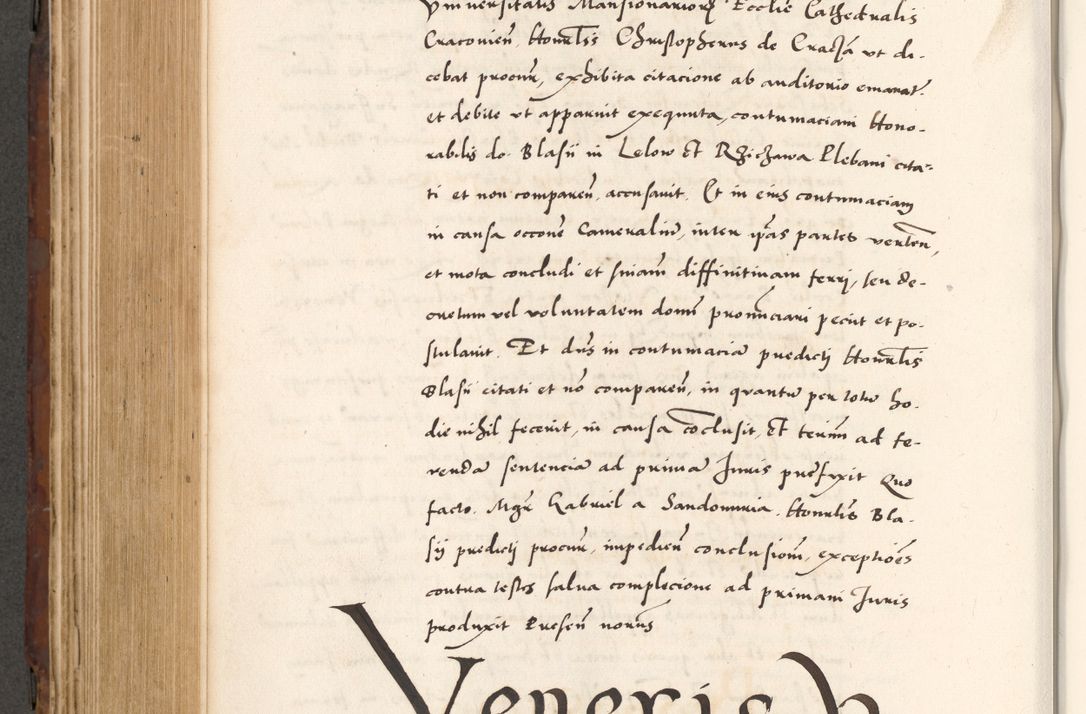 Vniuersitatis Mansionariorꝝ Ecclie Cathedralis
Cracovien̄. Honrlis Christopherus de Cracża vt di-
cebat procur̄, exhibita citacione ab auditorio emanat.
et debite vt apparuit exequuta, contumaciam Hono-
rabilis do. Blasii in Lelow et Rzichawa Plebani cita-
ti et non comparen̄, accusauit. Et in eius contumaciam
in causa occone Cameraliu, inter ip̄as partes verten̄,
et mota concludi et sniam diffinitiuam ferrj, seu de-
cretum vel voluntatem domī pronūciari peciit et po-
stulauit. Et dn̄s in contumaciā predictj Honrlis
Blasii citati et nō comparen̄, in quantū per totū ho-
die nihil fecerit, in causa cōclusit, et termn̄ ad fe-
rendā sentenciā ad primā Juris prefixit Quo
facto. Mgr̄ Gabriel a Sandomiria. Honrlis Bla-
sij predictj procur̄, impedien̄ conclusionē, exceptiōes
contra testes salua complecione ad primam Juris
produxit Presen̄ norūs
Veneris